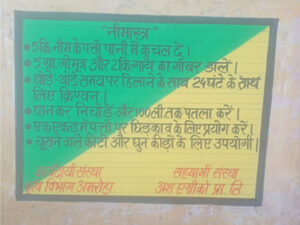 "नीमास्त्र"
• 5 कि. नीम के पत्ते पानी में कुचल दें।
• 5 ग्रा. गोमुत्र और 2 किग्राय का गोबर डालें।
• थोड़े-थोड़े समय पर हिलाने के साथ 24 घंटे के साथ
लिए किण्वन।
• छानकर निचोड़ें और 100 ली. तक पतला करें।
• एक एकड़ में पत्तो पर छिड़काव के लिए प्रयोग करें।
• चूसने वाले कीटों और घुन कीड़ो के लिए उपयोगी।
संस्था सहयागी संस्था
विभाग अमरोहा एग्रीको प्रा. लि.